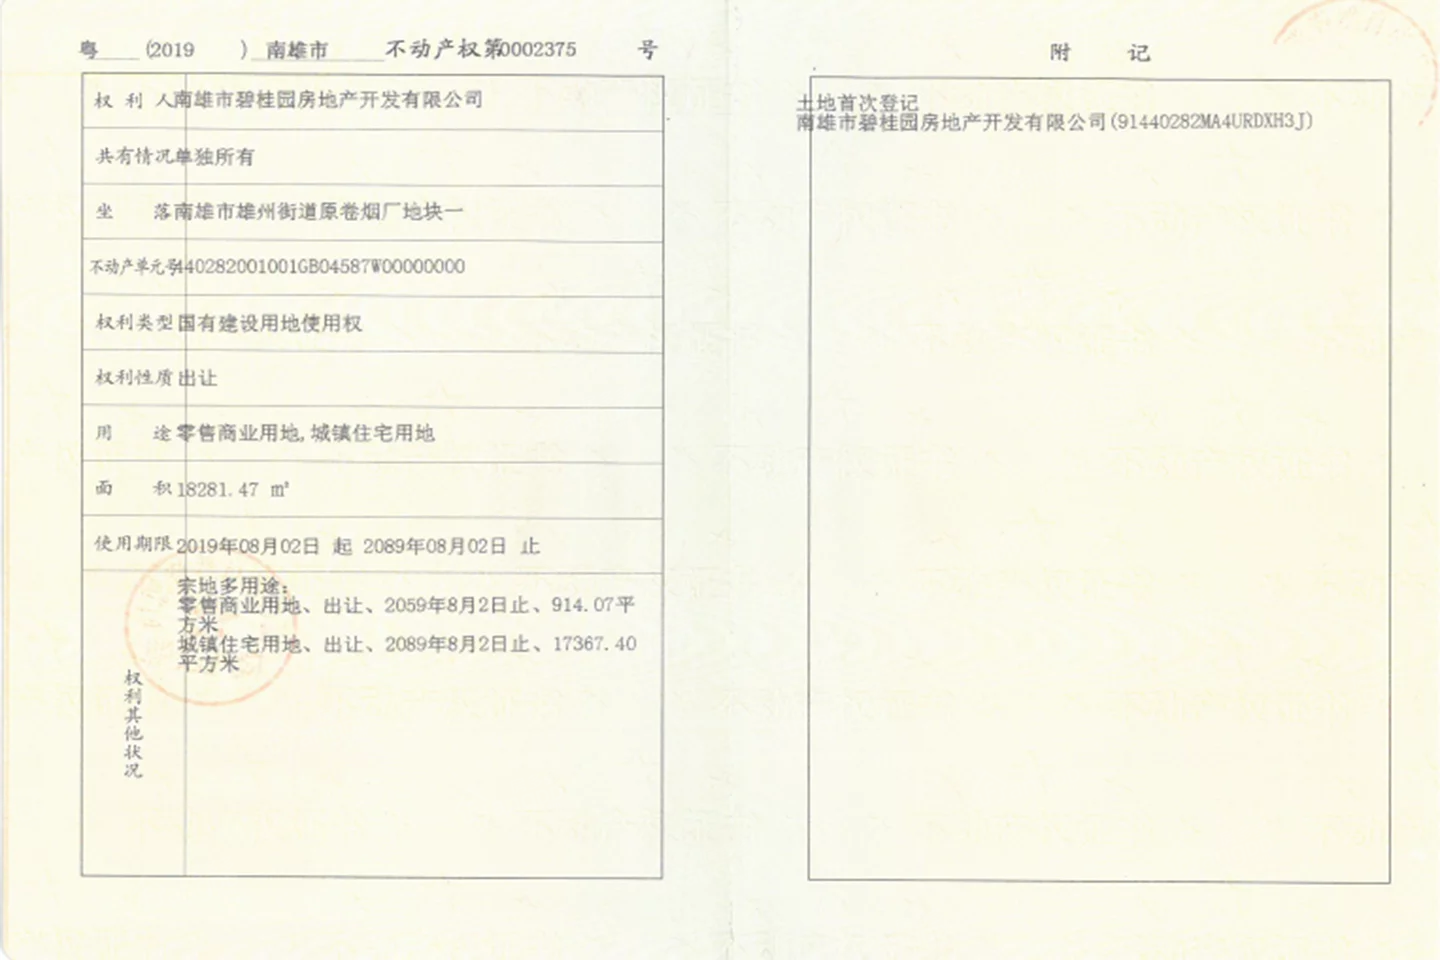 粤 (2019 ) 南雄市 不动产权第0002375 号
权利人 南雄市碧桂园房地产开发有限公司
共有情况 单独所有
坐落 南雄市雄州街道原卷烟厂地块一
不动产单元号 440282001001GB04587W00000000
权利类型 国有建设用地使用权
权利性质 出让
用途 零售商业用地,城镇住宅用地
面积 18281.47 ㎡
使用期限 2019年08月02日 起 2089年08月02日 止
权利其他状况
宗地多用途:
零售商业用地、出让、2059年8月2日止、914.07平
方米
城镇住宅用地、出让、2089年8月2日止、17367.40
平方米
附记
土地首次登记
南雄市碧桂园房地产开发有限公司(91440282MA4URDXH3J)